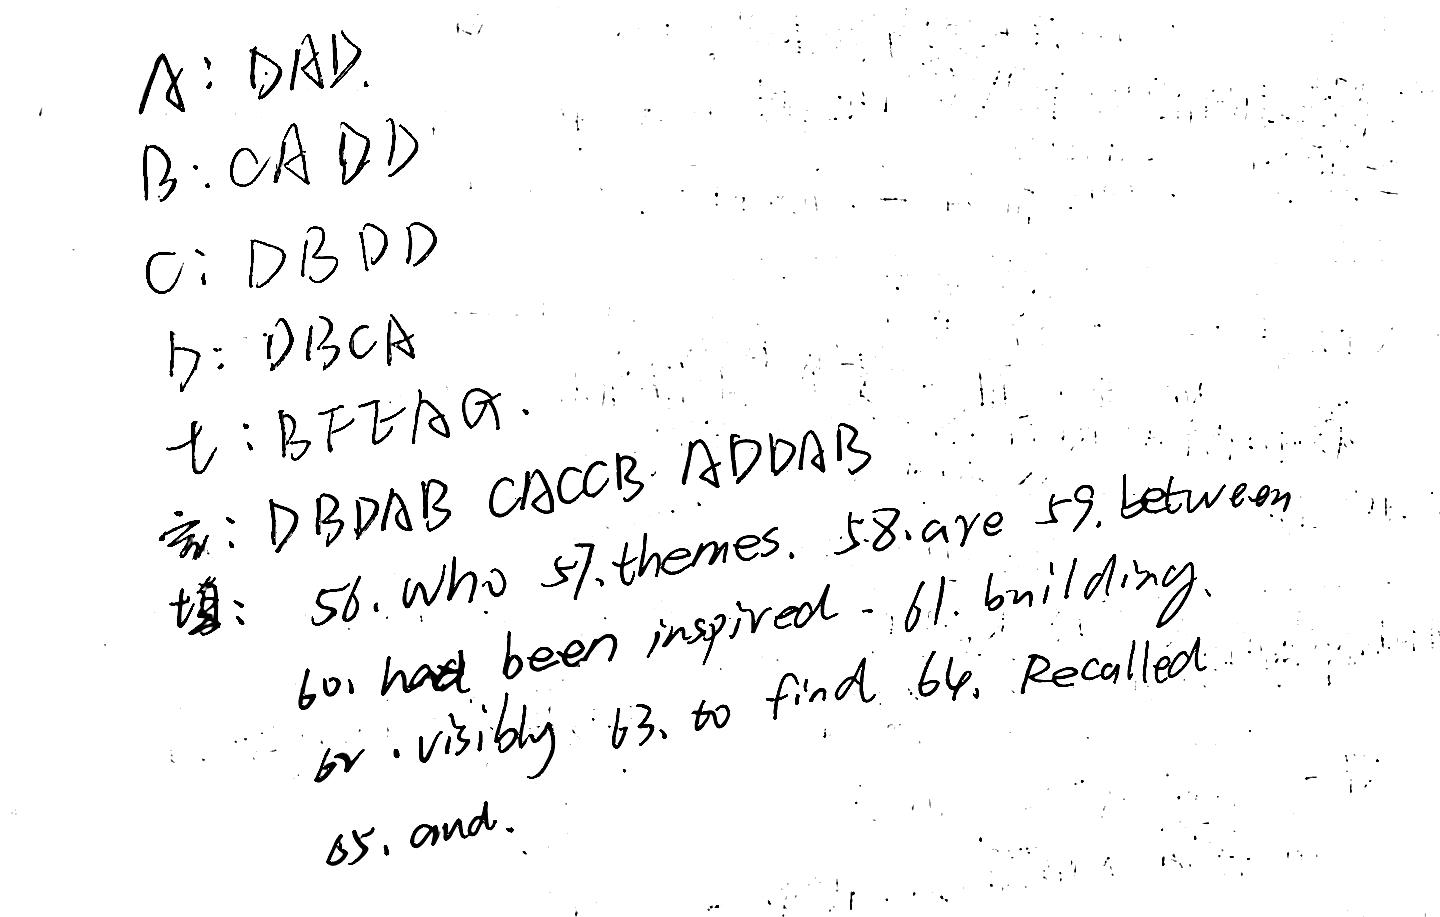 A: DAD.
B: CADD
C: DBDD
D: DBCA
七: BFEAG.
完: DBDAB CACCB ADDAB
填: 56. who 57. themes. 58. are 59. between
60. had been inspired - 61. building.
62. visibly 63. to find 64. Recalled
65. and.